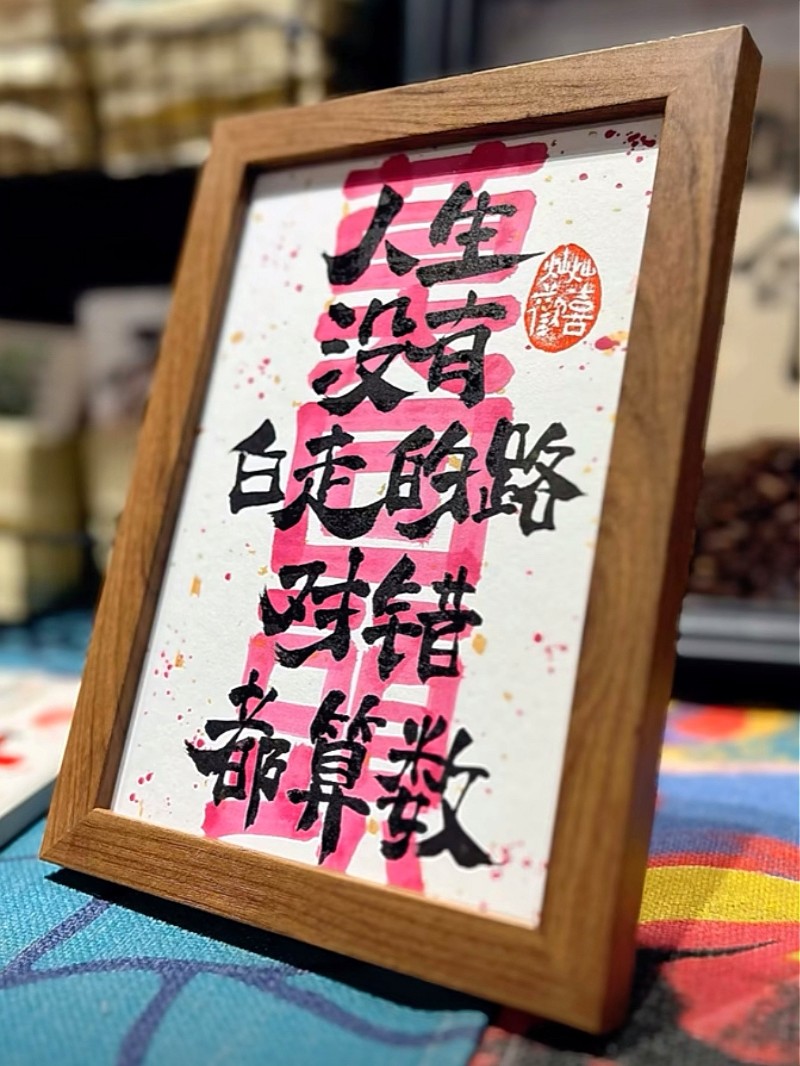 人生
没有
白走的路
对错
都算数